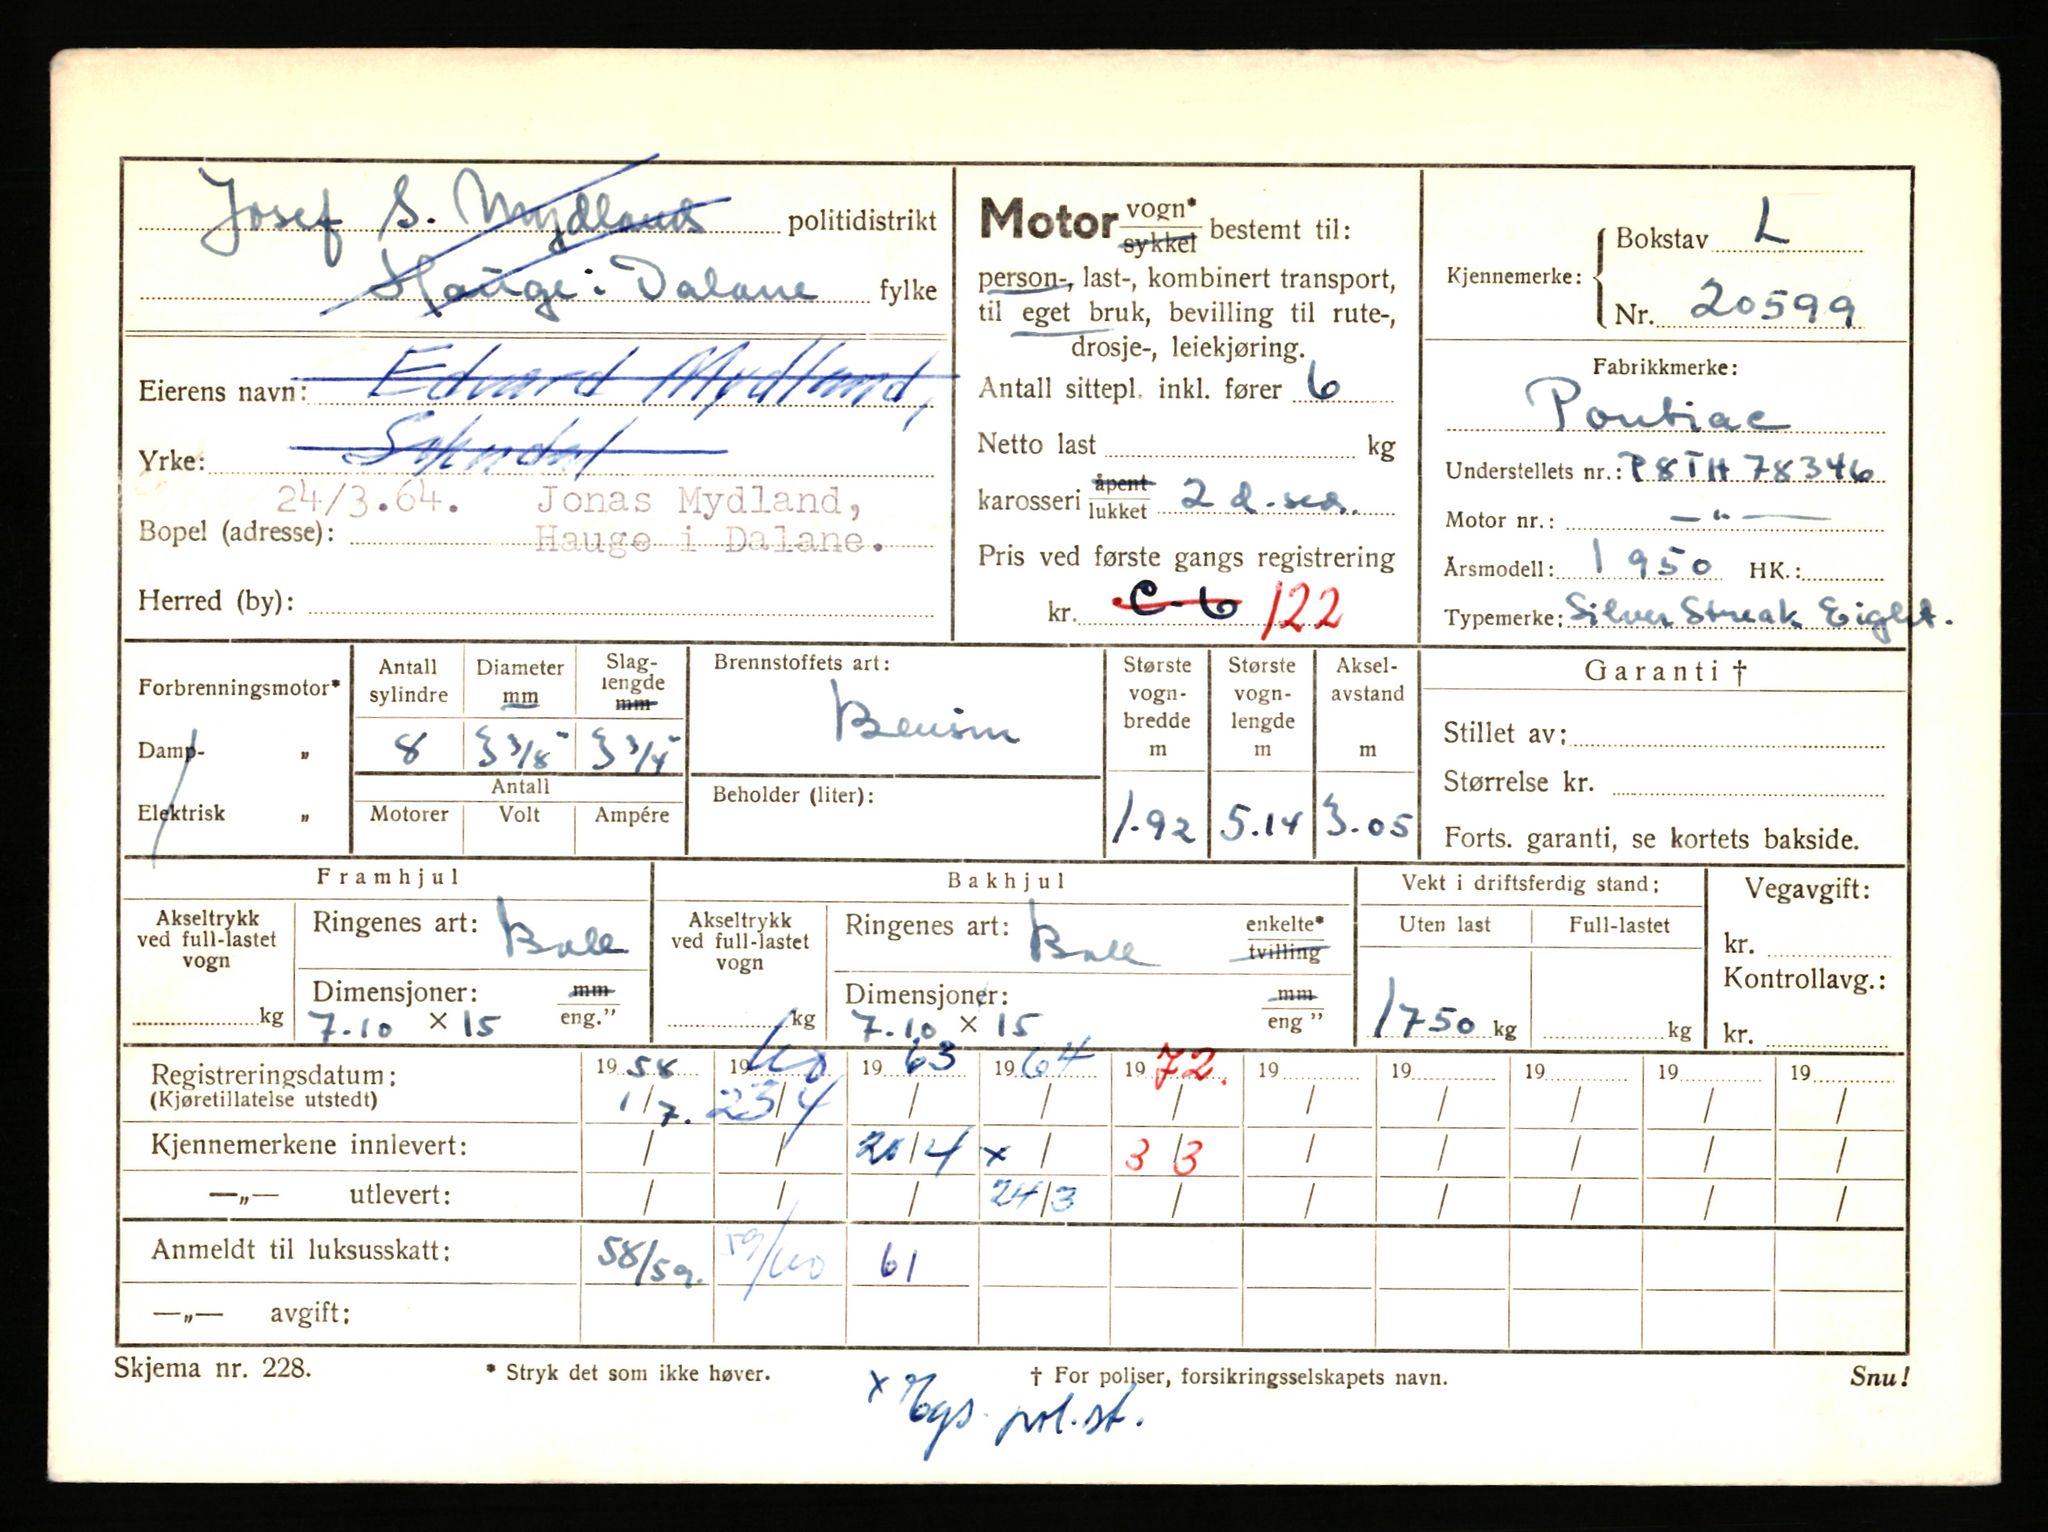 Josef S. Mydland politidistrikt
Hauge i Dalane fylke
Eierens navn: Edvard Mydland,
Yrke: Sokndal
24/3.64. Jonas Mydland,
Bopel (adresse): Hauge i Dalane.
Herred (by):
Motor vogn* / sykkel bestemt til:
person-, last-, kombinert transport,
til eget bruk, bevilling til rute-,
drosje-, leiekjøring.
Antall sittepl. inkl. fører 6
Netto last kg
karosseri åpent / lukket 2 d. sed.
Pris ved første gangs registrering
kr. C-6 122
Kjennemerke: Bokstav L
Nr. 20599
Fabrikkmerke:
Pontiac
Understellets nr.: P8TH 78346
Motor nr.: — " —
Årsmodell: 1950 HK.:
Typemerke: Silver Streak Eight.
Forbrenningsmotor*
Damp- „
Elektrisk „
Antall sylindre 8
Diameter mm 3 3/8"
Slag-lengde mm 3 3/4"
Antall
Motorer Volt Ampére
Brennstoffets art:
Bensin
Beholder (liter):
Største vogn-bredde m 1.92
Største vogn-lengde m 5.14
Aksel-avstand m 3.05
Garanti †
Stillet av:
Størrelse kr.
Forts. garanti, se kortets bakside.
Framhjul
Akseltrykk ved full-lastet vogn kg
Ringenes art: Ball
Dimensjoner: mm / eng."
7.10 × 15
Bakhjul
Akseltrykk ved full-lastet vogn kg
Ringenes art: Ball enkelte* / tvilling
Dimensjoner: mm / eng "
7.10 × 15
Vekt i driftsferdig stand:
Uten last Full-lastet
1750 kg kg
Vegavgift:
kr.
Kontrollavg.:
kr.
Registreringsdatum: 1958 1960 1963 1964 1972. 19 19 19 19 19
(Kjøretillatelse utstedt) 1/7. 25/4 / / / / / / / /
Kjennemerkene innlevert: / / 20/4 x / 3/3 / / / / /
—„— utlevert: / / / 24/3 / / / / / /
Anmeldt til luksusskatt: 58/59. 59/60 61
—„— avgift:
Skjema nr. 228. * Stryk det som ikke høver. † For poliser, forsikringsselskapets navn. Snu!
x pol.st.